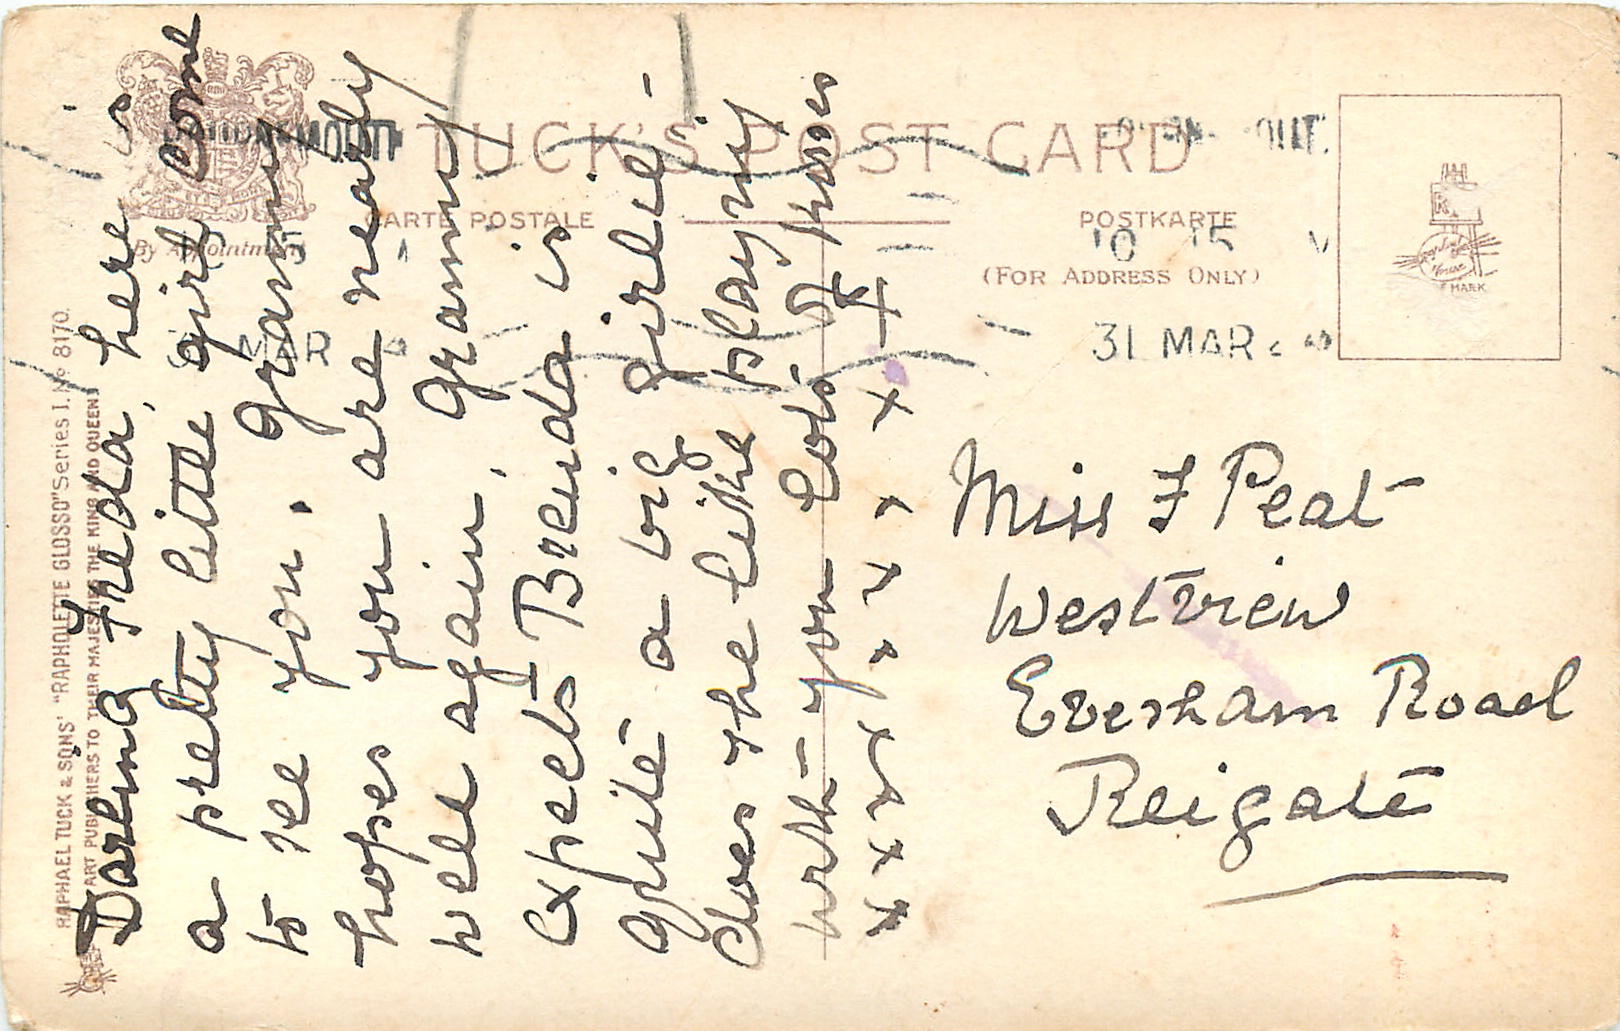 TUCK'S POST CARD
CARTE POSTALE
POSTKARTE
By Appointment
(FOR ADDRESS ONLY)
MARK
10 15
31 MAR
MAR
RAPHAEL TUCK & SONS' "RAPHOLETTE GLOSSO" Series I. No 8170.
ART PUBLISHERS TO THEIR MAJESTIES THE KING AND QUEEN.
Darling Freda, here is
a pretty little girl come
to see you. Granny
hopes you are nearly
well again, Granny
expects Brenda is
quite a big girlie -
does she like playing
with you lots of kisses
x x x x x x x x
Miss F Peat
Westview
Evesham Road
Reigate